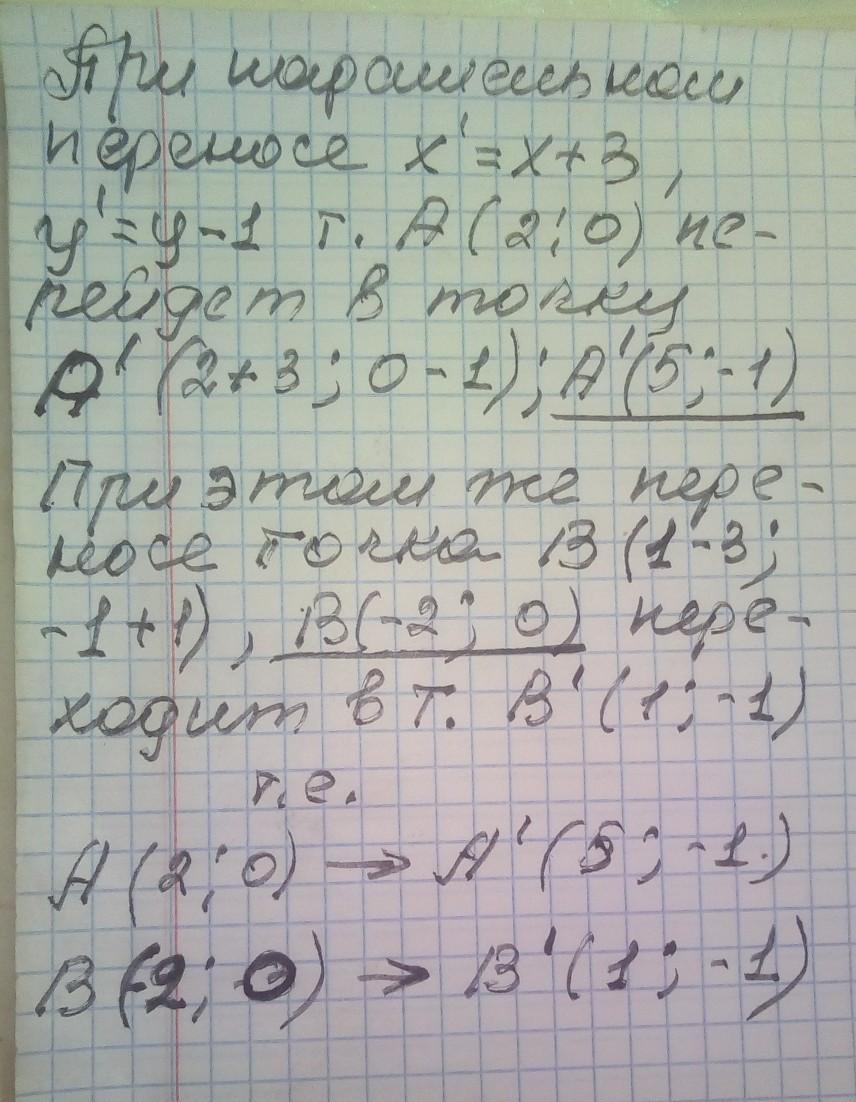 При параллельном
переносе x'=x+3,
y'=y-1 т. A(2;0) пе-
рейдет в точку
A'(2+3; 0-1); A'(5;-1)
При этом же пере-
носе точка B(1-3;
-1+1), B(-2; 0) пере-
ходит в т. B'(1;-1)
т.е.
A(2;0) → A'(5;-1)
B(-2;0) → B'(1;-1)